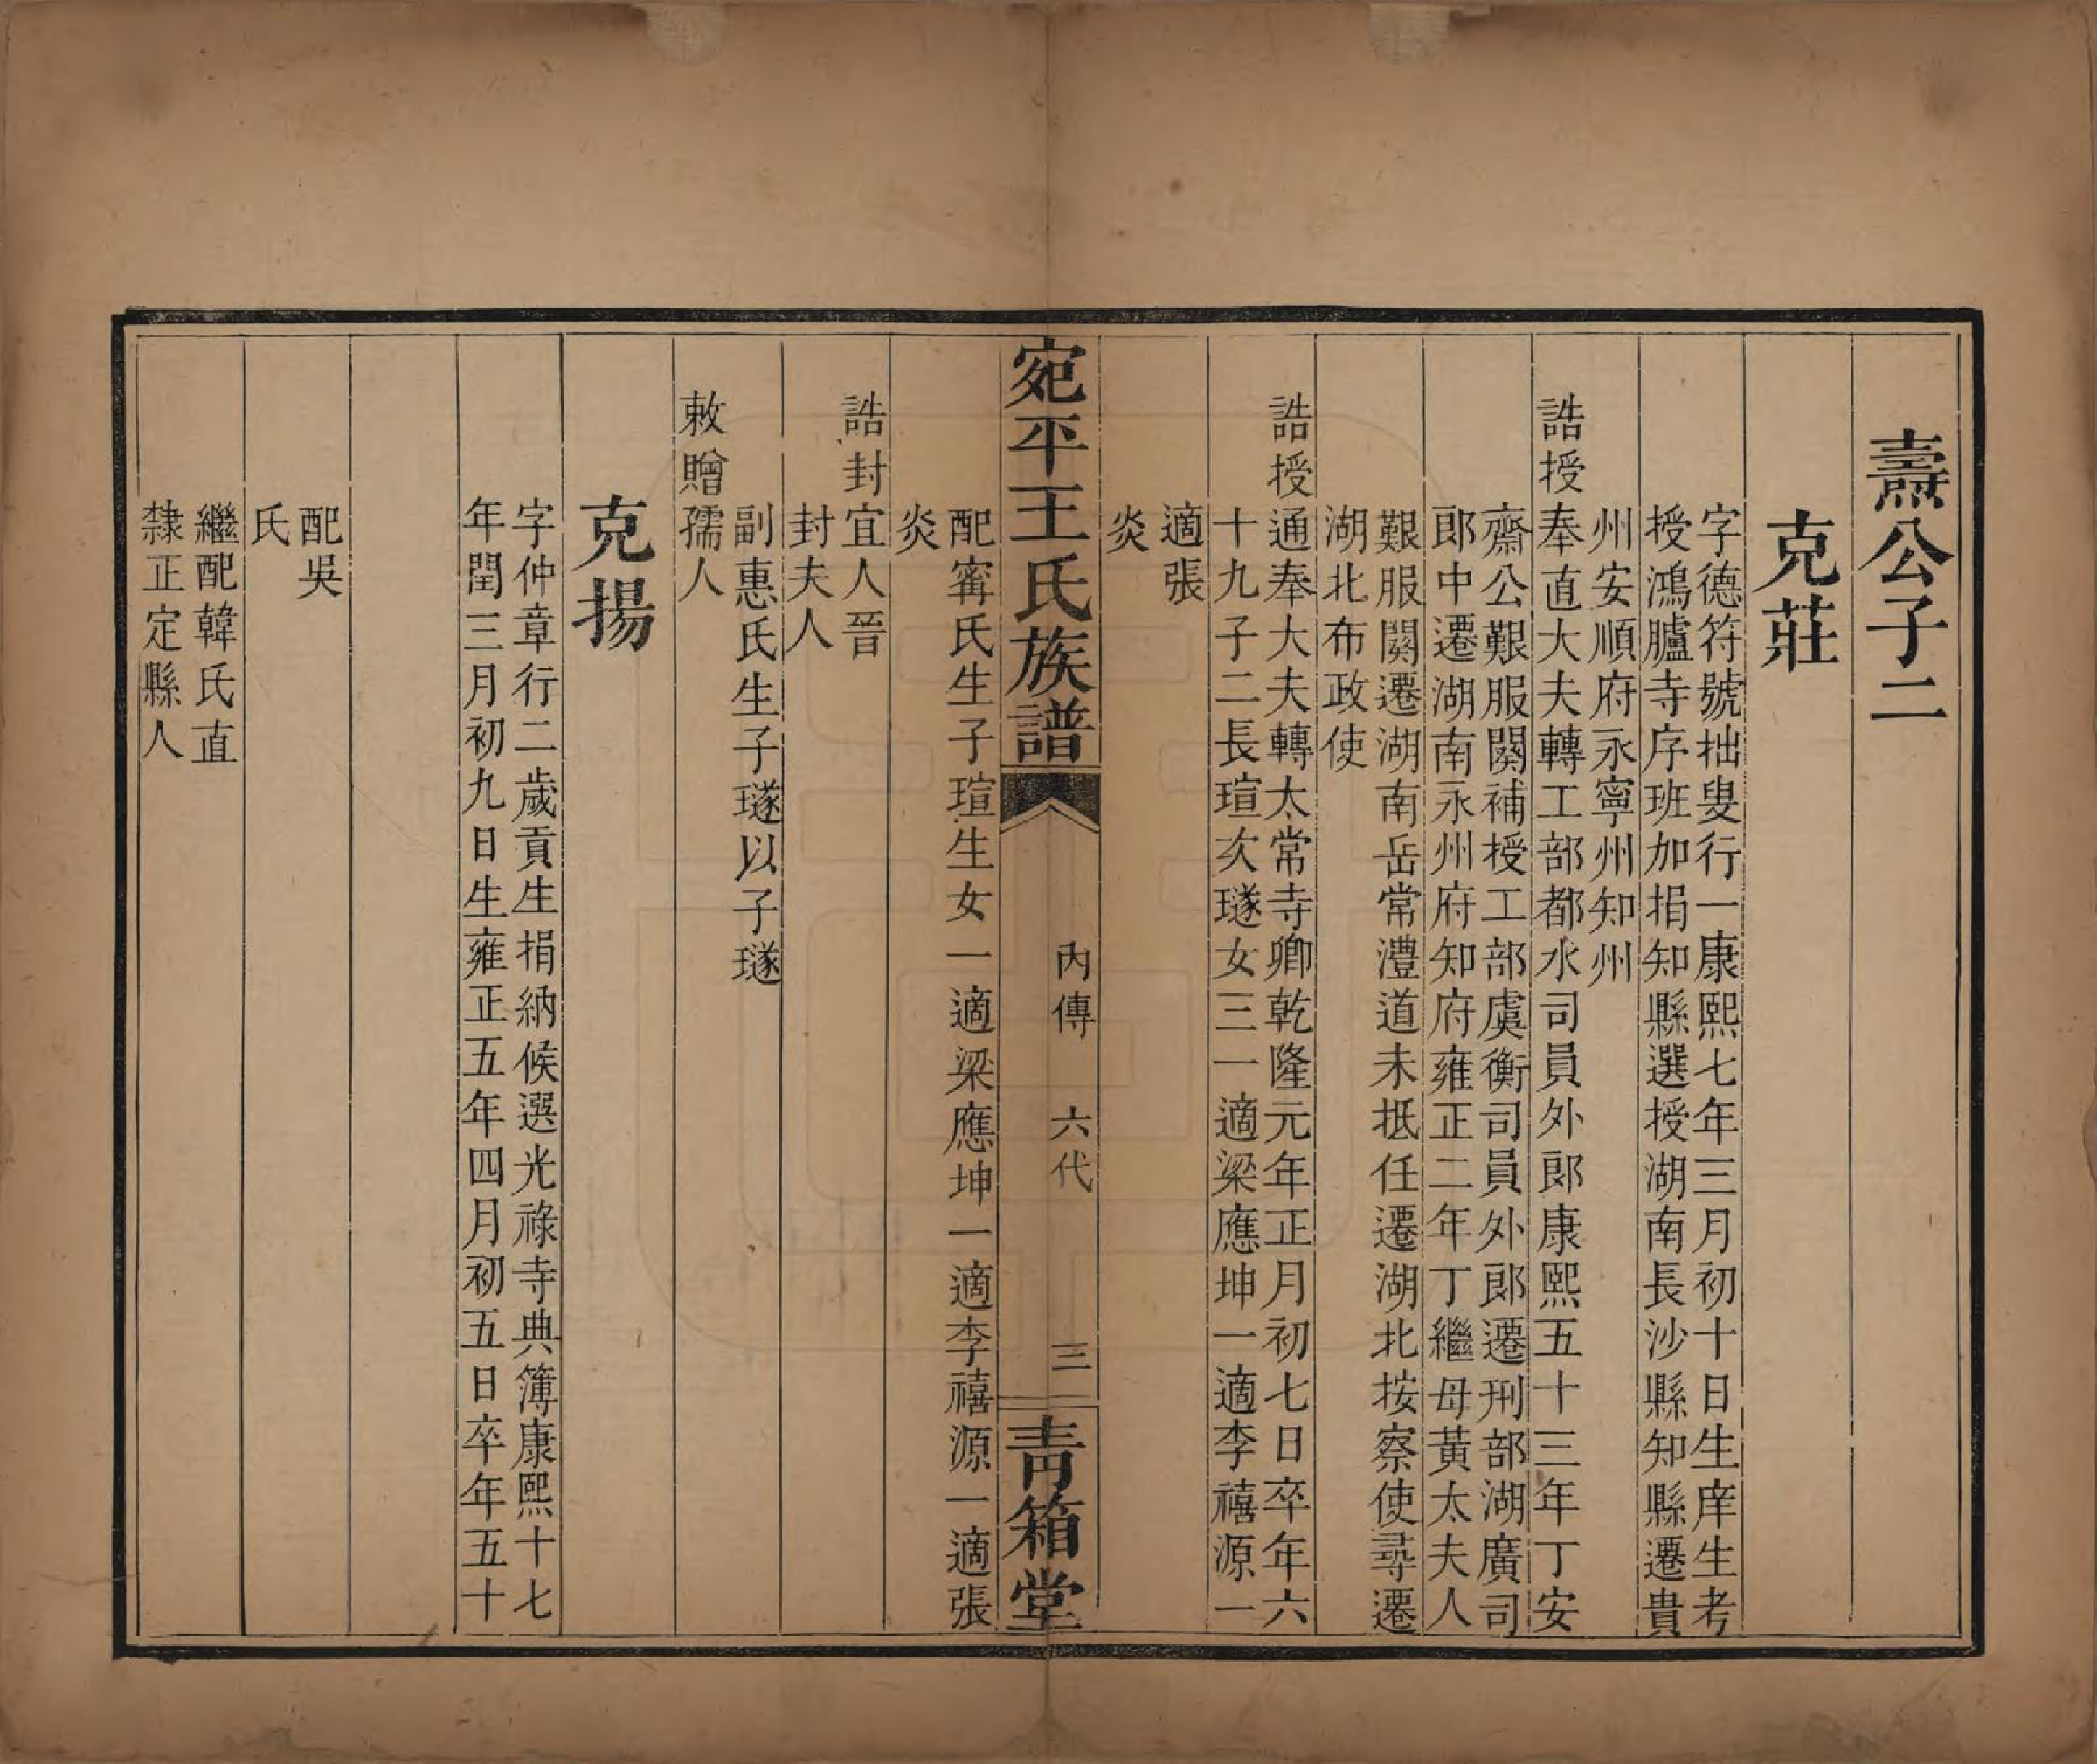 燾公子二
克莊
字德符號拙叟行一康熙七年三月初十日生庠生考
授鴻臚寺序班加捐知縣選授湖南長沙縣知縣遷貴
州安順府永寧州知州
誥授奉直大夫轉工部都水司員外郎康熙五十三年丁安
齋公艱服闋補授工部虞衡司員外郎遷刑部湖廣司
郎中遷湖南永州府知府雍正二年丁繼母黃太夫人
艱服闋遷湖南岳常澧道未抵任遷湖北按察使尋遷
湖北布政使
誥授通奉大夫轉太常寺卿乾隆元年正月初七日卒年六
十九子二長瑄次璲女三一適梁應坤一適李禧源一
適張
炎
宛平王氏族譜
內傳 六代 三
青箱堂
配甯氏生子瑄生女一適梁應坤一適李禧源一適張
炎
誥封宜人晉
封夫人
副惠氏生子璲以子璲
敕贈孺人
克揚
字仲章行二歲貢生捐納候選光祿寺典簿康熙十七
年閏三月初九日生雍正五年四月初五日卒年五十
配吳
氏
繼配韓氏直
隸正定縣人